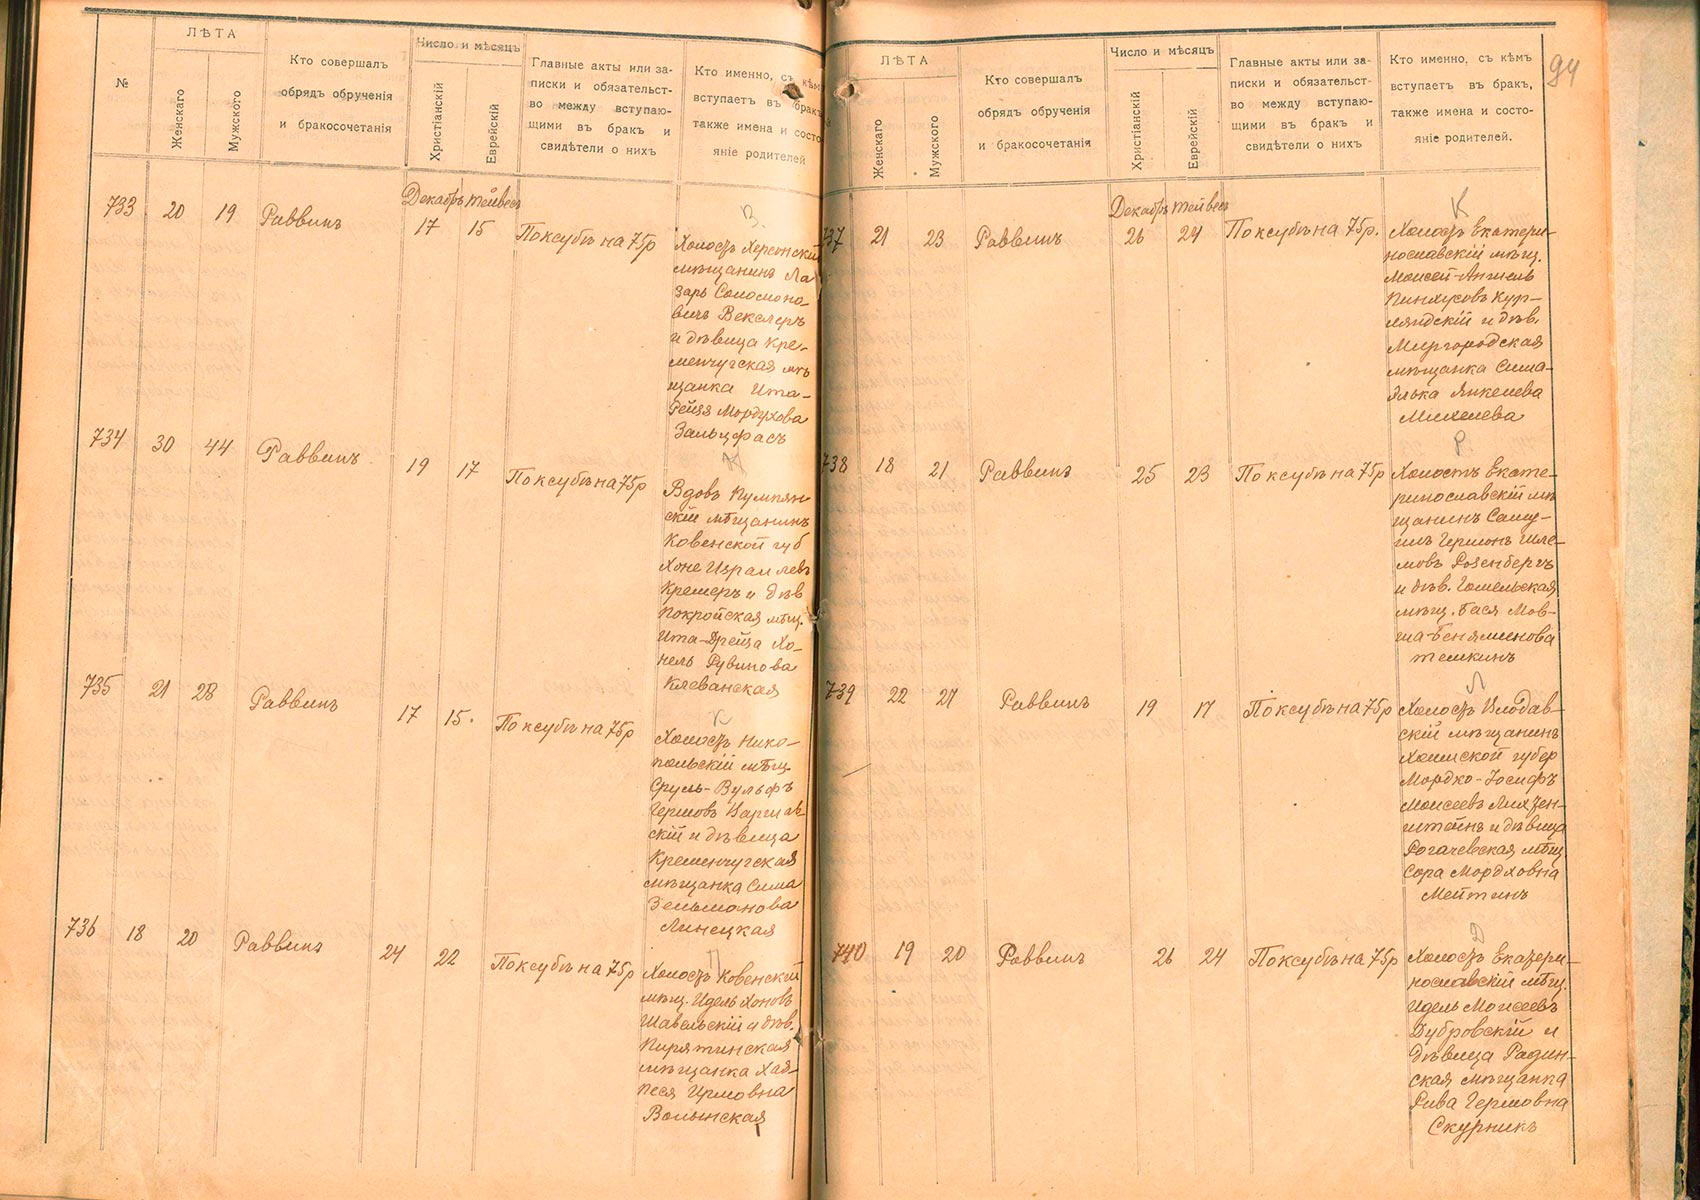 №
ЛѢТА
Женскаго
Мужского
Кто совершалъ
обрядъ обрученія
и бракосочетанія
Число и мѣсяцъ
Христіанскій
Еврейскій
Главные акты или за-
писки и обязательст-
во между вступаю-
щими въ бракъ и
свидѣтели о нихъ
Кто именно, съ кѣмъ
вступаетъ въ бракъ
также имена и состо-
яніе родителей
Декабрь Тейвесъ
733 20 19 Раввинъ 17 15 По ксубѣ на 75 р
В.
Холостъ Херсонскій
мѣщанинъ Ла-
зарь Соломоно-
вичъ Векслеръ
и дѣвица Кре-
менчугская мѣ
щанка Ита-
Рейзя Мордухова
Зальцфасъ
734 30 44 Раввинъ 19 17 По ксубѣ на 75 р
К
Вдовъ Кумпян
скій мѣщанинъ
Ковенской губ
Хоне Израилевъ
Кремеръ и дѣв
Покройская мѣщ.
Ита-Фрейда Хо-
нель Рувинова
Клеванская
735 21 28 Раввинъ 17 15. По ксубѣ на 75 р
К
Холостъ Нико-
польскій мѣщ
Сруль-Вульфъ
Гершовъ
скій и дѣвица
Кременчугская
мѣщанка Сима
Зельманова
Линецкая
736 18 20 Раввинъ 24 22 По ксубѣ на 75 р
Холостъ Ковенскій
мѣщ. Идель Хоновъ
Шавельскій и дѣв.
Пирятинская
мѣщанка Хая-
Песя Ирмовна
Волынская
94
ЛѢТА
Женскаго
Мужского
Кто совершалъ
обрядъ обрученія
и бракосочетанія
Число и мѣсяцъ
Христіанскій
Еврейскій
Главные акты или за-
писки и обязательст-
во между вступаю-
щими въ бракъ и
свидѣтели о нихъ
Кто именно, съ кѣмъ
вступаетъ въ бракъ,
также имена и состо-
яніе родителей.
Декабрь Тейвесъ
737 21 23 Раввинъ 26 24 По ксубѣ на 75 р.
К
Холостъ Екатери-
нославскій мѣщ.
Моисей-Аншель
Пинхусовъ Кур-
ляндскій и дѣв.
Миргородская
мѣщанка Сима-
Элька Янкелева
Михелева
738 18 21 Раввинъ 25 23 По ксубѣ на 75 р
Р.
Холостъ Екате-
ринославскій мѣ
щанинъ Саму-
илъ Гершонъ Шле-
мовъ Розенбергъ
и дѣв. Гомельская
мѣщ. Бася Мов-
ша-Беняминова
Темкинъ
739 22 27 Раввинъ 19 17 По ксубѣ на 75 р
Л
Холостъ Влодав-
скій мѣщанинъ
Холмской губер
Мордко-Іосифъ
Моисеевъ Лихтен-
штейнъ и дѣвица
Рогачевская мѣщ
Сора Мордховна
Мейтинъ
740 19 20 Раввинъ 26 24 По ксубѣ на 75 р
Д
Холостъ Екатери-
нославскій мѣщ.
Идель Моисеевъ
Дубровскій и
дѣвица Радин-
ская мѣщанка
Рива Гершовна
Скурникъ